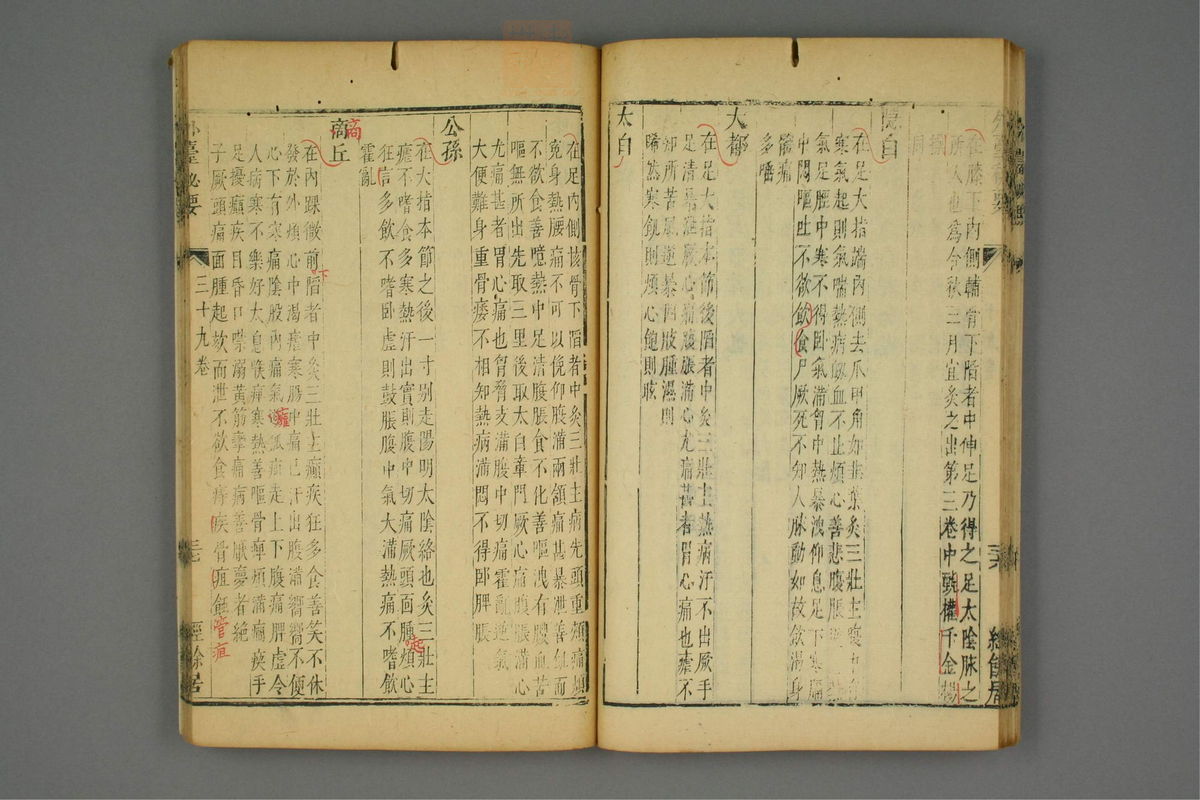 在膝下內側輔骨下陷者中伸足乃得之足太陰脉之
所入也爲合秋三月宜灸之出第三卷中甄權千金楊
同
隱白
在足大指端內側去爪甲角如韭葉灸三壯主
寒氣起則氣喘熱病衂血不止煩心善悲腹脹
氣足脛中寒不得臥氣滿胷中熱暴洩仰息足下寒膈
中悶嘔吐不欲飲食尸厥死不知人脉動如故飲渴身
體痛
多唾
大都
在足大指本節後陷者中灸三壯主熱病汗不出厥手
足清暴泄厥心痛腹脹滿心尤痛甚者胃心痛也瘧不
知所苦風逆暴四肢腫濕則
唏然寒飢則煩心飽則眩
太白
在足內側核骨下陷者中灸三壯主病先頭重頰痛煩
寃身熱腰痛不可以俛仰腹滿兩頷痛甚暴泄善飢而
不欲食善噫熱中足清腹脹食不化善嘔洩有膿血苦
嘔無所出先取三里後取太白章門厥心痛腹脹滿心
尤痛甚者胃心痛也胷脅支滿腹中切痛霍亂逆氣
大便難身重骨痿不相知熱病滿悶不得卧脾脹
公孫
在大指本節之後一寸别走陽明太陰絡也灸三壯主
瘧不嗜食多寒熱汗出實則腹中切痛厥頭面腫煩心
狂言多飲不嗜卧虛則鼓脹腹中氣大滿熱痛不嗜飲
霍亂
商丘
在內踝微前陷者中灸三壯主癲疾狂多食善笑不休
發於外煩心中渴瘧寒腸中痛已汗出腹滿嚮嚮不便
心下有寒痛陰股內痛氣狐疝走上下腹痛脾虛令
人病寒不樂好太息喉痺寒熱善嘔骨痺煩滿癇瘛手
足擾癲疾目昏口噤溺黃筋攣痛病善魘夢者絶
子厥頭痛面腫起欬而泄不欲食痔疾骨疽蝕
外臺秘要
三十九卷
經餘居